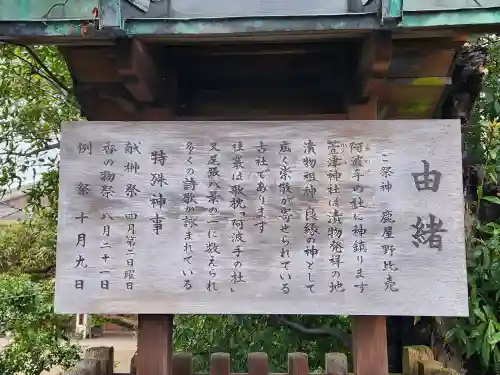 由緒
ご祭神 鹿屋野比売
阿波手の社に神鎮ります
萱津神社は漬物発祥の地
漬物祖神・良縁の神として
広く崇敬が寄せられている
古社であります
往歳は歌枕「阿波手の杜」
又尾張八景の一に数えられ
多くの詩歌が詠まれている
特殊神事
献榊祭 四月第二日曜日
香の物祭 八月二十一日
例祭 十月九日